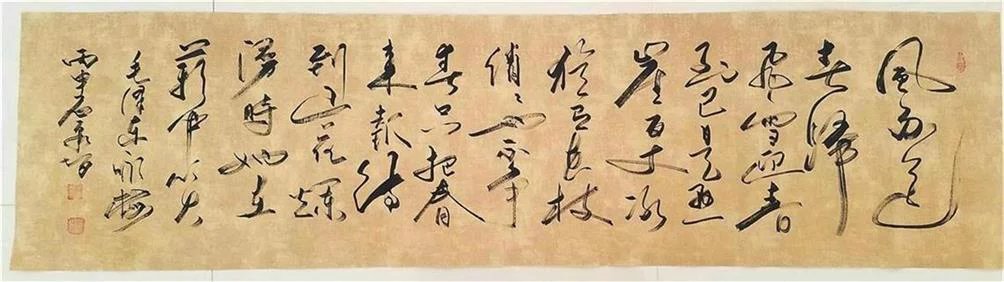 風雨送
春歸
飛雪迎春
到已是悬
崖百丈冰
猶有花枝
俏〻也不爭
春只把春
来報待
到山花爛
漫時她在
叢中笑
毛澤东咏梅
丙申